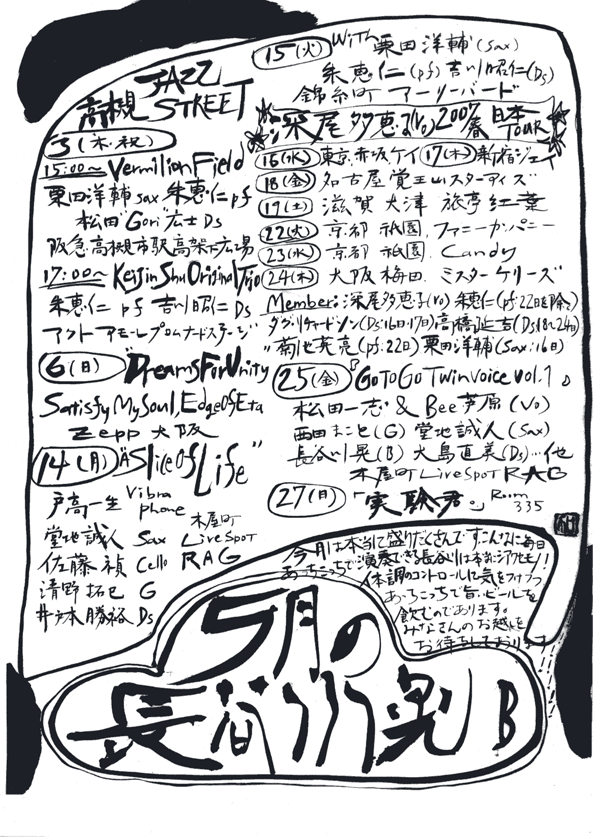 JAZZ
高槻 STREET
3(木・祝)
15:00〜 Vermilion Field
栗田洋輔 sax 朱恵仁 pf
松田"Gori"広士 Ds
阪急高槻市駅高架下広場
17:00〜 Keijin Shu Original Trio
朱恵仁 pf 吉川昭仁 Ds
6(日) "Dreams For Unity"
Satisfy My Soul, Edge Of Eta
Zepp 大阪
14(月) "A Slice Of Life"
戸高一生 Vibra phone
堂地誠人 Sax
佐藤禎 Cello
清野拓巳 G
勝裕 Ds
木屋町
Live SpoT
RAG
15(火) with 栗田洋輔(sax)
朱恵仁(pf) 吉川昭仁(Ds)
錦糸町 アーリーバード
深尾多恵子(Vo) 2007春 日本 TOUR
16(水) 東京、赤坂 17(木) 新宿
18(金) 名古屋 覚王山スターアイズ
19(土) 滋賀 大津 旅亭 紅葉
22(火) 京都 祇園、ファニーカンパニー
23(水) 京都 祇園、Candy
24(木) 大阪 梅田、ミスターケリーズ
Member: 深尾多恵子(vo) 朱恵仁(pf:22日を除く)
ダグ・リチャードソン(Ds:16日・17日) 高橋延吉(Ds18〜24日)
菊池英亮(pf:22日) 栗田洋輔(Sax:16日)
25(金) 「GoToGo Twin voice vol.1」
松田一志 & Bee 芦原(Vo)
西田まこと(G) 堂地誠人(Sax)
長谷川晃(B) 大島直美(Ds)…他
木屋町 Live SpoT RAG
27(日) 「実験君」 Room 335
今月は本当に盛りだくさんです。こんなに毎日
あっちこっちで演奏できる長谷川は本当にシアワセモノ!
体調のコントロールに気をつけつつ
あっちこっちで旨いビールを
飲むのであります。
みなさんのお越しを
お待ちしております
5月の
長谷川晃 B